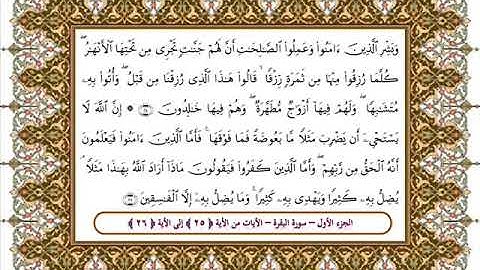 وَبَشِّرِ ٱلَّذِينَ ءَامَنُوا۟ وَعَمِلُوا۟ ٱلصَّـٰلِحَـٰتِ أَنَّ لَهُمْ جَنَّـٰتٍ تَجْرِى مِن تَحْتِهَا ٱلْأَنْهَـٰرُ ۖ
كُلَّمَا رُزِقُوا۟ مِنْهَا مِن ثَمَرَةٍ رِّزْقًا ۙ قَالُوا۟ هَـٰذَا ٱلَّذِى رُزِقْنَا مِن قَبْلُ ۖ وَأُتُوا۟ بِهِۦ
مُتَشَـٰبِهًا ۖ وَلَهُمْ فِيهَآ أَزْوَٰجٌ مُّطَهَّرَةٌ ۖ وَهُمْ فِيهَا خَـٰلِدُونَ ﴿٢٥﴾ ۞ إِنَّ ٱللَّهَ لَا
يَسْتَحْىِۦٓ أَن يَضْرِبَ مَثَلًا مَّا بَعُوضَةً فَمَا فَوْقَهَا ۚ فَأَمَّا ٱلَّذِينَ ءَامَنُوا۟ فَيَعْلَمُونَ
أَنَّهُ ٱلْحَقُّ مِن رَّبِّهِمْ ۖ وَأَمَّا ٱلَّذِينَ كَفَرُوا۟ فَيَقُولُونَ مَاذَآ أَرَادَ ٱللَّهُ بِهَـٰذَا مَثَلًا ۘ
يُضِلُّ بِهِۦ كَثِيرًا وَيَهْدِى بِهِۦ كَثِيرًا ۚ وَمَا يُضِلُّ بِهِۦٓ إِلَّا ٱلْفَـٰسِقِينَ ﴿٢٦﴾
الجزء الأول – سورة البقرة – الآيات من الآية ﴿ ٢٥ ﴾ إلى الآية ﴿ ٢٦ ﴾